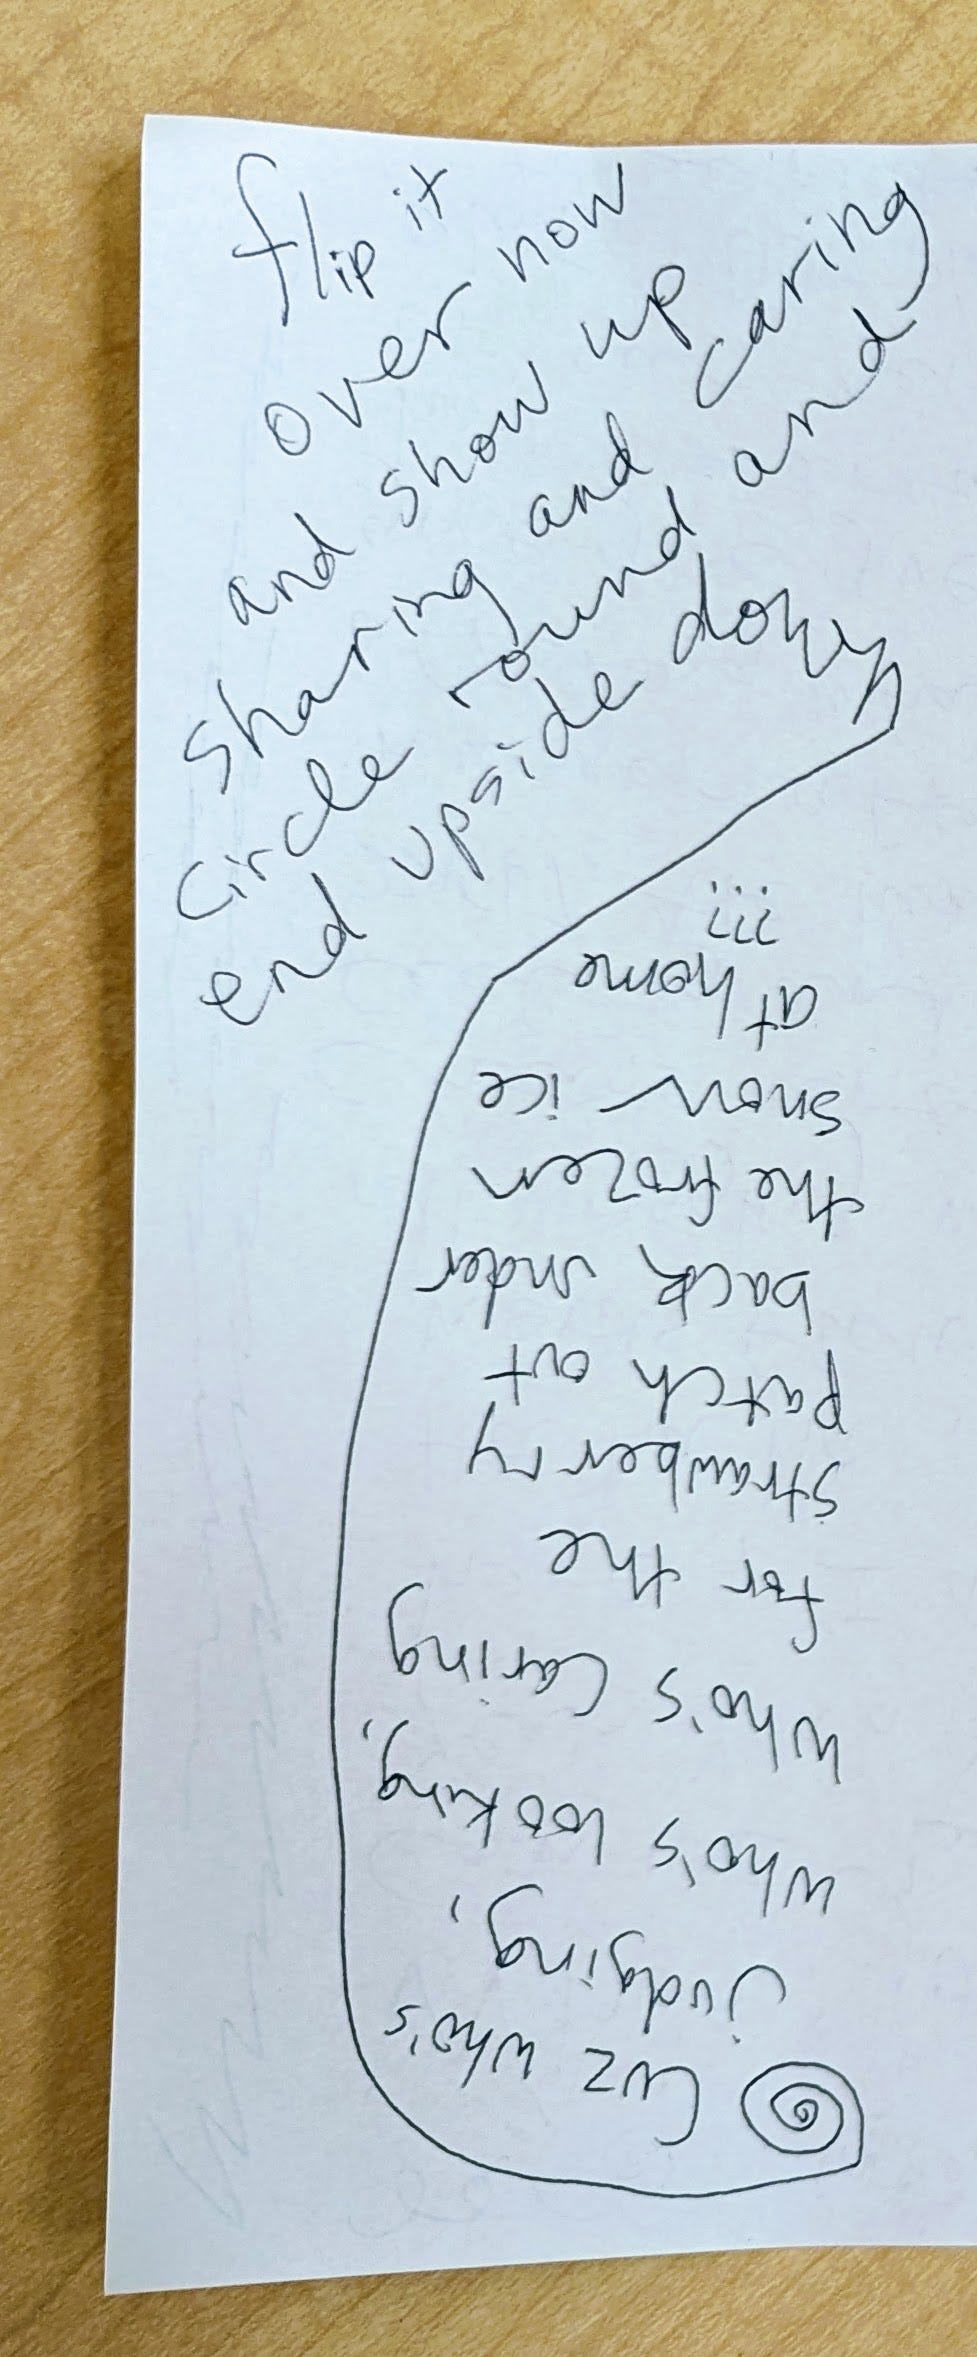 flip it
over now
and show up
sharing and caring
circle round and
end upside down
Cuz who's
judging,
who's looking,
who's caring
for the
strawberry
patch out
back, under
the frozen
snow ice
at home
???